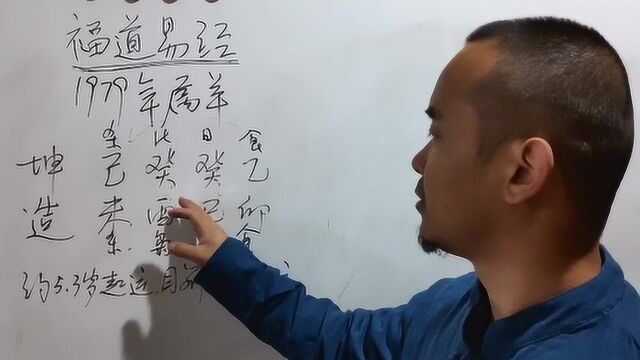 福道易经
1979年属羊
杀 比 日 食
坤 己 癸 癸 乙
造 未 酉 巳 卯
杀 枭 食
约5.3岁起运.目前